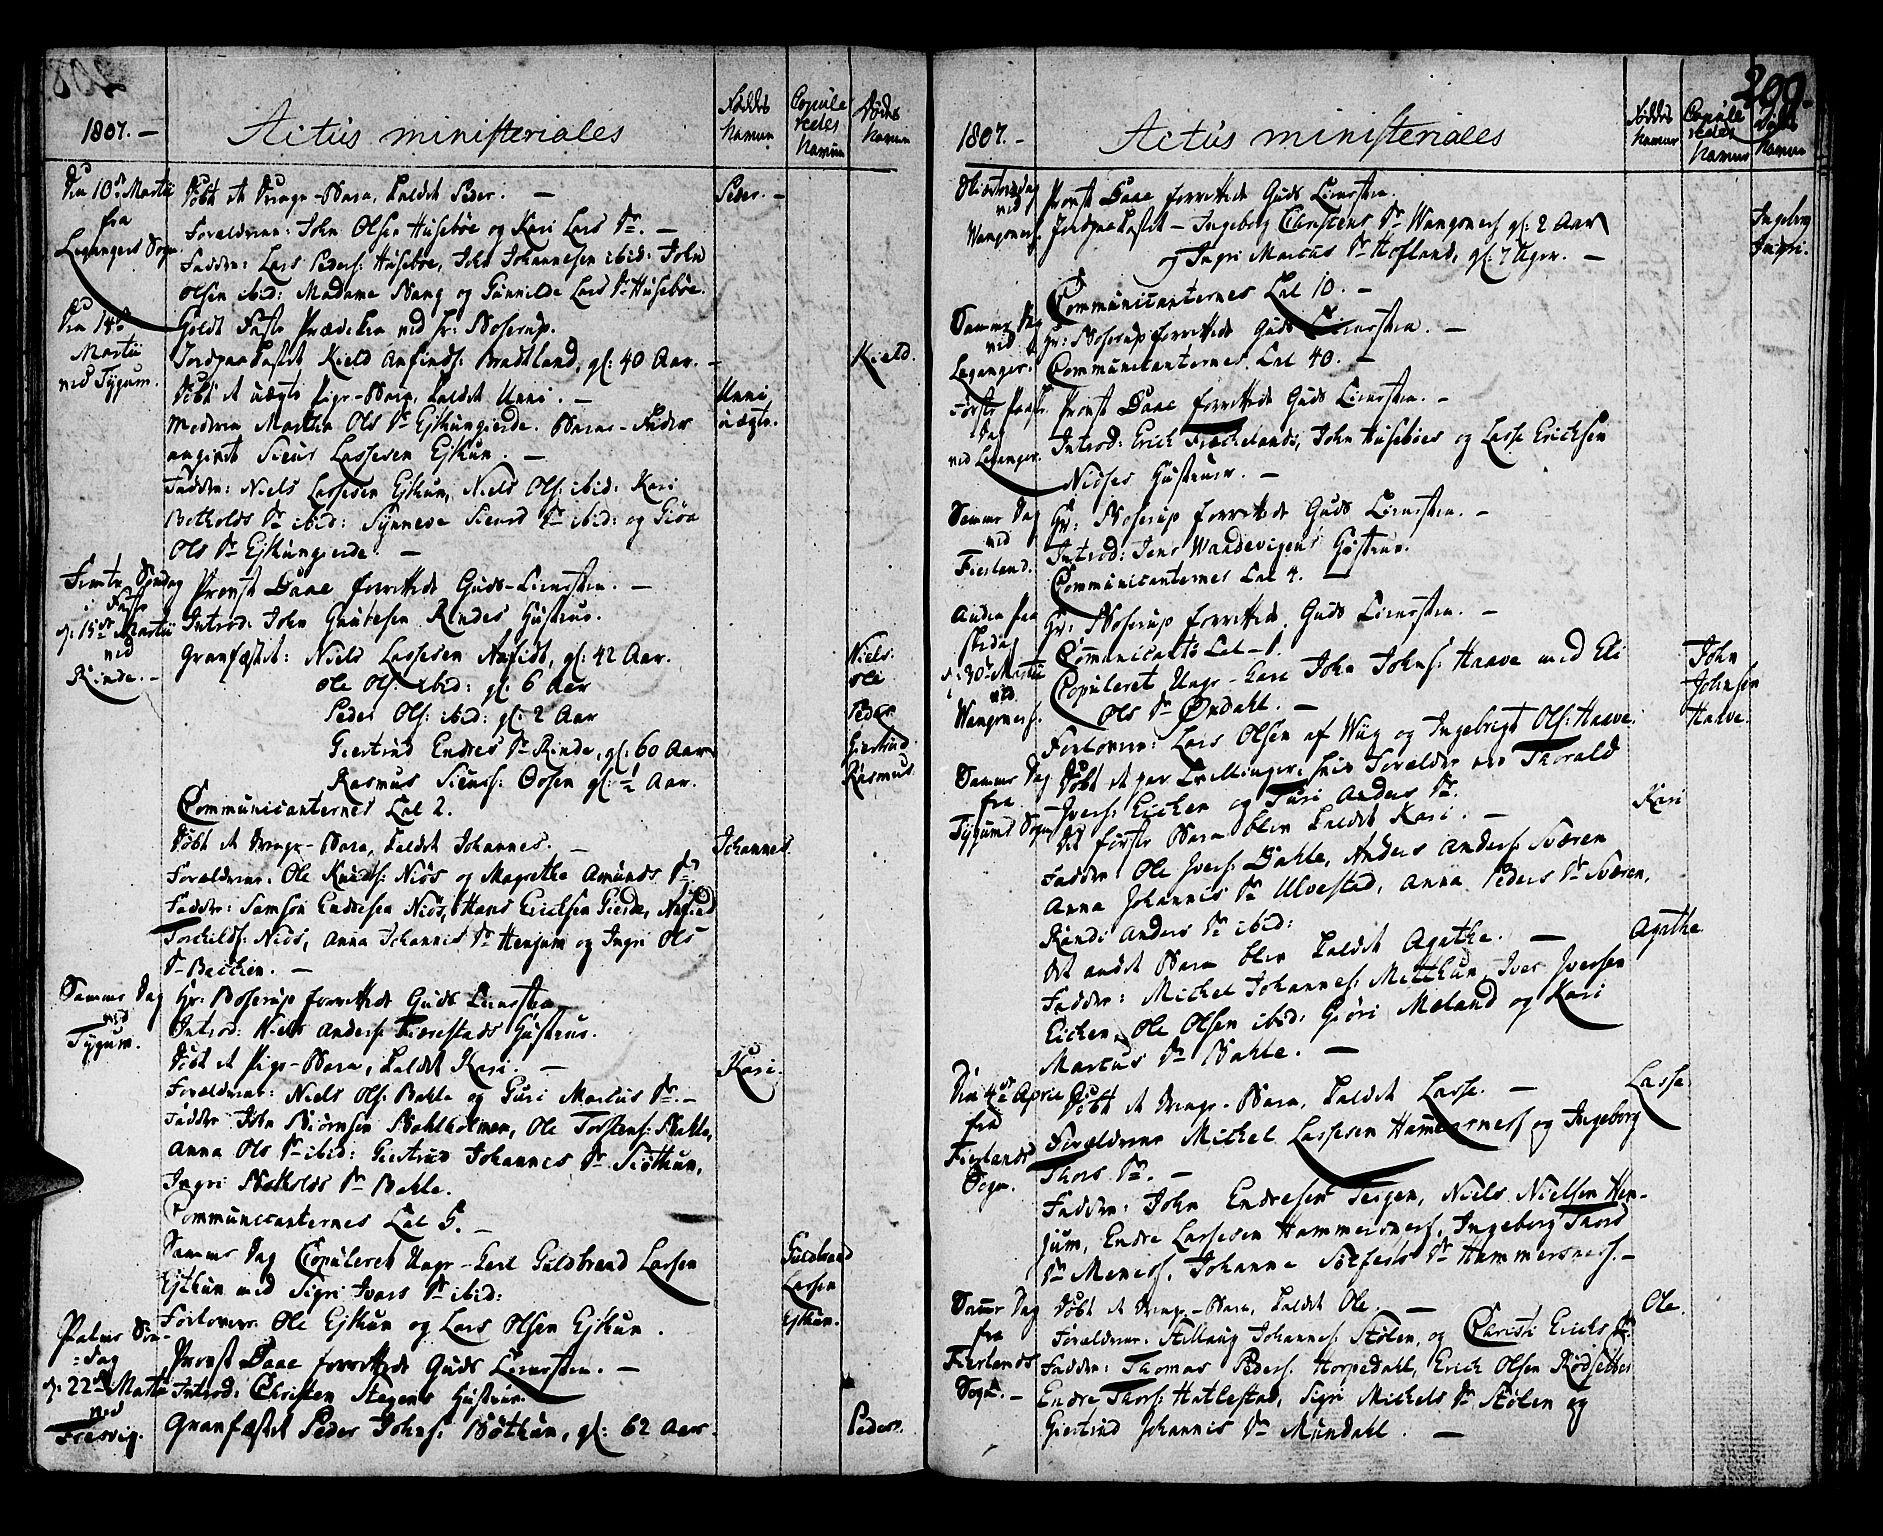 208
1807. –
Actus ministeriales
Føddes Navne
Copuleredes Navne
Dødes Navne
Den 10de Martii fra Leganger Sogn
Døbt et Drenge-Barn, kaldet Peder. –
Peder. –
Forældrene: John Olsen Husebøe og Kari Lars Dr. –
Faddere: Lars Peders: Husebøe, John Johannesen ibid: John
Olsen ibid: Madame Bang og Gunnilde Lars Dr Husebøe.
Den 14de Martii ved Tygum.
Holdt Faste Prædiken ved Hr: Boserup.
Jordpaakastet Kield Anfinds: Bradtland, gl: 40 Aar. –
Kield.
Døbt et uægte Pige-Barn, kaldet Unni. –
Unni uægte.
Moderen Martha Ols Dr Eskungierde. Barne-Fader
angivet Siur Lassesen Eskun. –
Faddere: Niels Lassesen Eskun, Niels Ols: ibid: Kari
Botholds Dr ibid: Synneve Siurd Dr ibid: og Giøa
Ols Dr Eskungierde. –
Femte Søndag i Faste d: 15de Martii ved Rinde. –
Provst Daae forrettede Guds-Tienesten. –
Introd: John Gautesen Rindes Hustrue.
Graafæstet: Niels Lassesen Nafedt, gl: 42 Aar.
Niels.
Ole Ols: ibid: gl: 6 Aar
Ole
Peder Ols: ibid: gl: 2 Aar
Peder
Giertrud Endres Dr Rinde, gl: 60 Aar
Giertrud
Rasmus Siurs: Øvsen gl: ½ Aar.
Rasmus
Communicanternes Tal 2.
Døbt et Drenge-Barn, kaldet Johannes. –
Johannes.
Forældrene: Ole Knuds: Niøs og Magrethe Amunds Dr
Faddere: Samson Endresen Niøs, Hans Erichsen Gierde,
Torchilds: Niøs, Anna Johannis Dr Henjum og Ingri Ols
Dr Bachen. –
Samme Dag ved Tygum.
Hr: Boserup forrettede Guds Tienesten
Introd: Niels Anders: Fiærestads Hustrue.
Døbt et Pige-Barn, kaldet Kari. –
Kari.
Forældrene: Niels Ols: Bahle og Guri Marcus Dr. –
Faddere John Biørnsen Bahlholmen, Ole Torstens: Bahle,
Anna Ols Dr ibid: Giertrud Johannis Dr Siøthun,
Ingri Botholds Dr Bahle.
Communicanternes Tal 5. –
Samme Dag Copuleret Unge-Karl Guldbrand Lassen
Eskun med Sigri Ivers Dr ibid:
Guldbrand Lassen Eskun.
Forlovere Ole Eskun og Lars Olsen Eskun.
Palme Søndag d: 22de Martii ved Fresvig.
Provst Daae forrettede Guds Tienesten. –
Introd: Christen Stegens Hustrue.
Graafæstet Peder Johns: Bøthun, gl: 62 Aar.
Peder.
209.
1807. –
Actus ministeriales
Føddes Navne
Copuleredes Navne
Døde Navne
Skiærtorsdag ved Wangsnes.
Provst Daae forrettede Guds Tienesten.
Jordpaakastet – Ingeborg Christens Dr Wangsnes gl: 2 Aar
Ingeborg
og Ingri Marcus Dr Hofland, gl: 7 Uger. –
Ingri.
Communicanternes Tal 10. –
Samme Dag ved Leganger.
Hr: Boserup forrettede Guds Tienesten. –
Communicanternes Tal 40. –
Første Paaske Dag ved Leganger.
Provst Daae forrettede Guds Tienesten. –
Introd: Erich Frechelands, John Husebøes og Lasse Erichsen
Niøses Hustruer. –
Samme Dag ved Fierland.
Hr: Boserup forrettede Guds Tienesten. –
Introd: Jens Wandevigens Hustrue.
Communicanternes Tal 4.
Anden Paaskedag d: 30te Martii ved Wangsnes.
Hr: Boserup forrettede, Guds Tienesten. –
Communicants Tal – 1.
Copuleret Unge-Karl John Johns: Haave med Eli
John Johnsen Haave.
Ols Dr Øndahl. –
Forlovere: Lars Olsen af Wiig og Ingebrigt Ols: Haave.
Samme Dag fra Tygums Sogn
Døbt et par Tvillinger, hvis Forældre ere Thorald
Ivers: Eichen og Turi Anders Dr.
Det første Barn blev kaldet Kari. –
Kari
Faddere: Ole Ivers: Dahle, Anders Anders: Sværen
Anna Johannis Dr Ulvestad, Anna Peders Dr Sværen,
Randi Anders Dr ibid:
Det andet Barn blev kaldet Agathe. –
Agathe
Faddere: Michel Johannes: Mitthun, Iver Iversen
Eichen, Ole Olsen ibid: Giøri Meland og Kari
Marcus Dr Bahle. –
Den 4de April fra Fierlands Sogn.
Døbt et Drenge-Barn, kaldet Lasse. –
Lasse
Forældrene Michel Lassesen Hammersnes og Ingeborg
Thors Dr. –
Faddere: John Endresen Teigen, Niels Nielsen Hen-
jum, Endre Lassesen Hammersnes, Ingeborg Thors
Dr Menes, Johanna Siufers Dr Hammersnes. –
Samme Dag fra Fierlands Sogn. –
Døbt et Drenge-Barn, kaldet Ole. –
Ole.
Forældrene: Stillaug Johannes: Stølen, og Christi Erichs Dr
Faddere: Thomas Peders: Horpedahl, Erich Olsen Rødseter
Endre Thors: Hatlestad, Sigri Michels Dr Stølen og
Giertrud Johannis Dr Mundahl. –